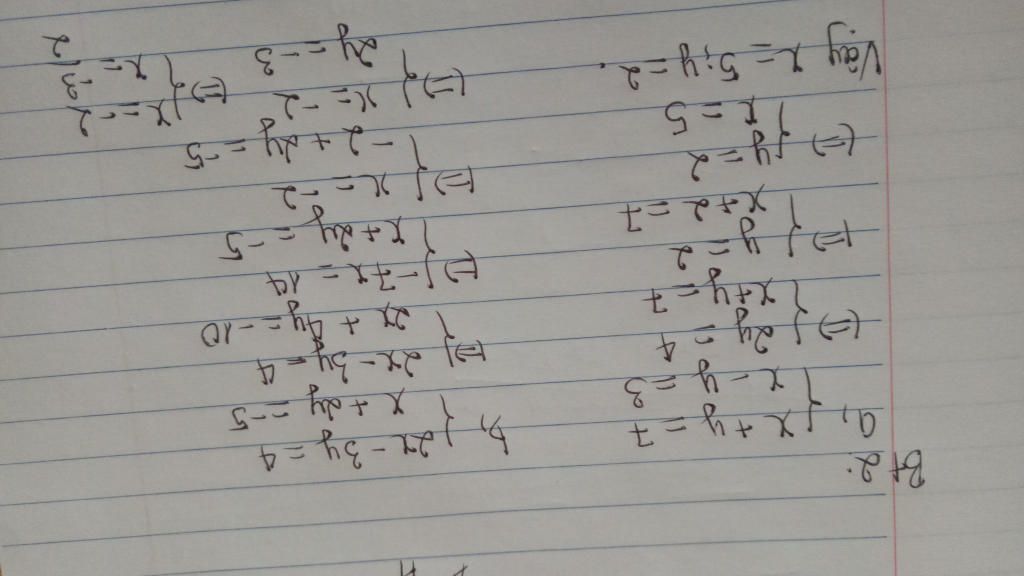 Bt 2:
a, { x + y = 7
x - y = 3
(=) { 2y = 4
x + y = 7
(=) { y = 2
x + 2 = 7
(=) { y = 2
x = 5
Vậy x = 5; y = 2.
b, { 2x - 3y = 4
x + 2y = -5
(=) { 2x - 3y = 4
2x + 4y = -10
(=) { -7x = 14
x + 2y = -5
(=) { x = -2
-2 + 2y = -5
(=) { x = -2 (=) { x = -2
2y = -3 x = -3/2